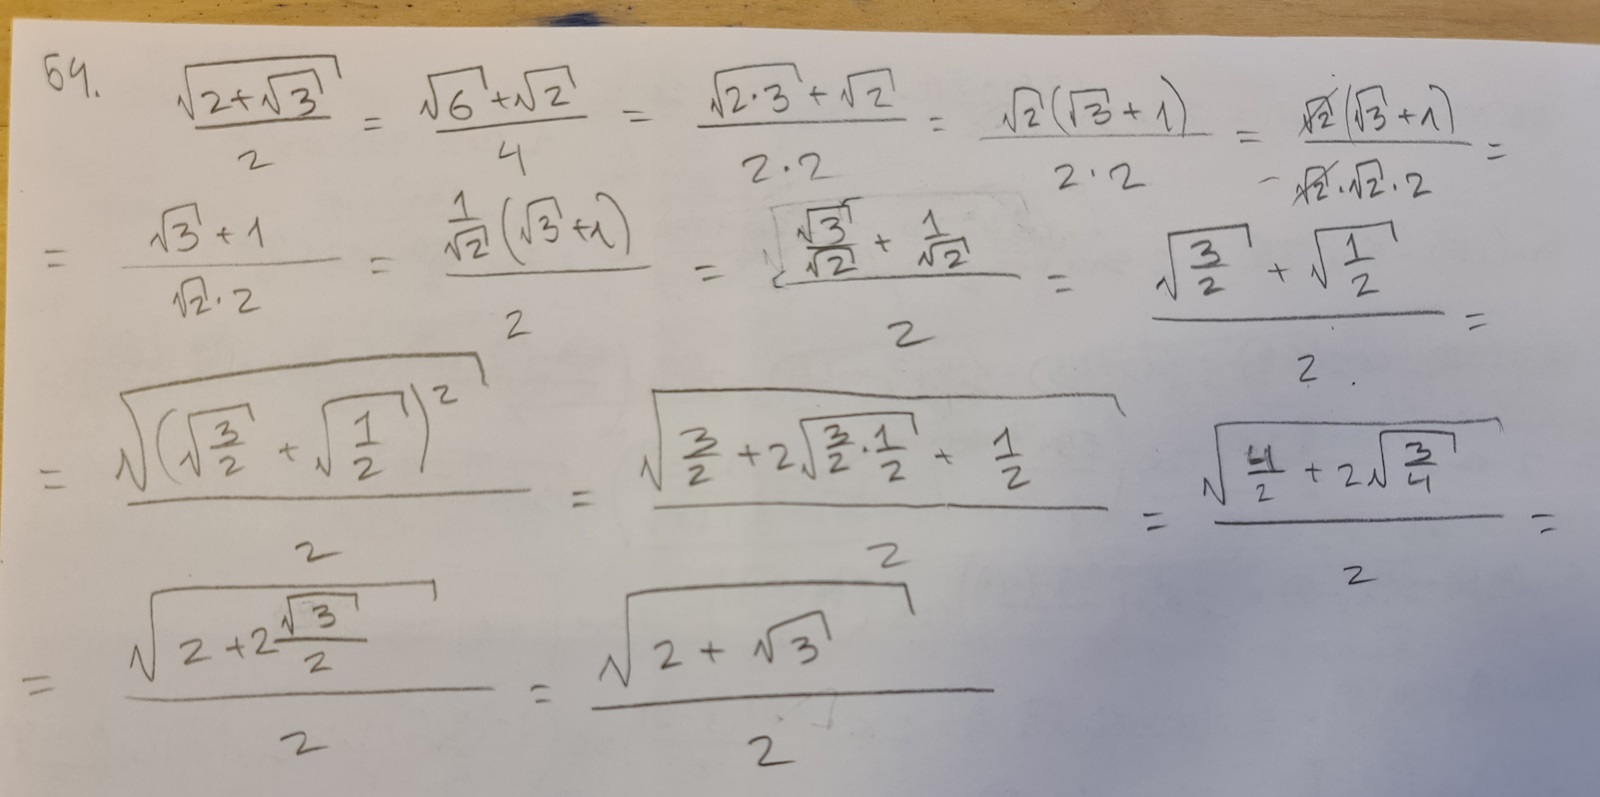 54. √(2+√3)/2 = (√6+√2)/4 = (√(2·3)+√2)/(2·2) = √2(√3+1)/(2·2) = √2(√3+1)/(√2·√2·2) =
= (√3+1)/(√2·2) = (1/√2(√3+1))/2 = (√3/√2 + 1/√2)/2 = (√(3/2) + √(1/2))/2 =
= √((√(3/2) + √(1/2))²)/2 = √(3/2 + 2√(3/2·1/2) + 1/2)/2 = √(4/2 + 2√(3/4))/2 =
= √(2+2√3/2)/2 = √(2+√3)/2